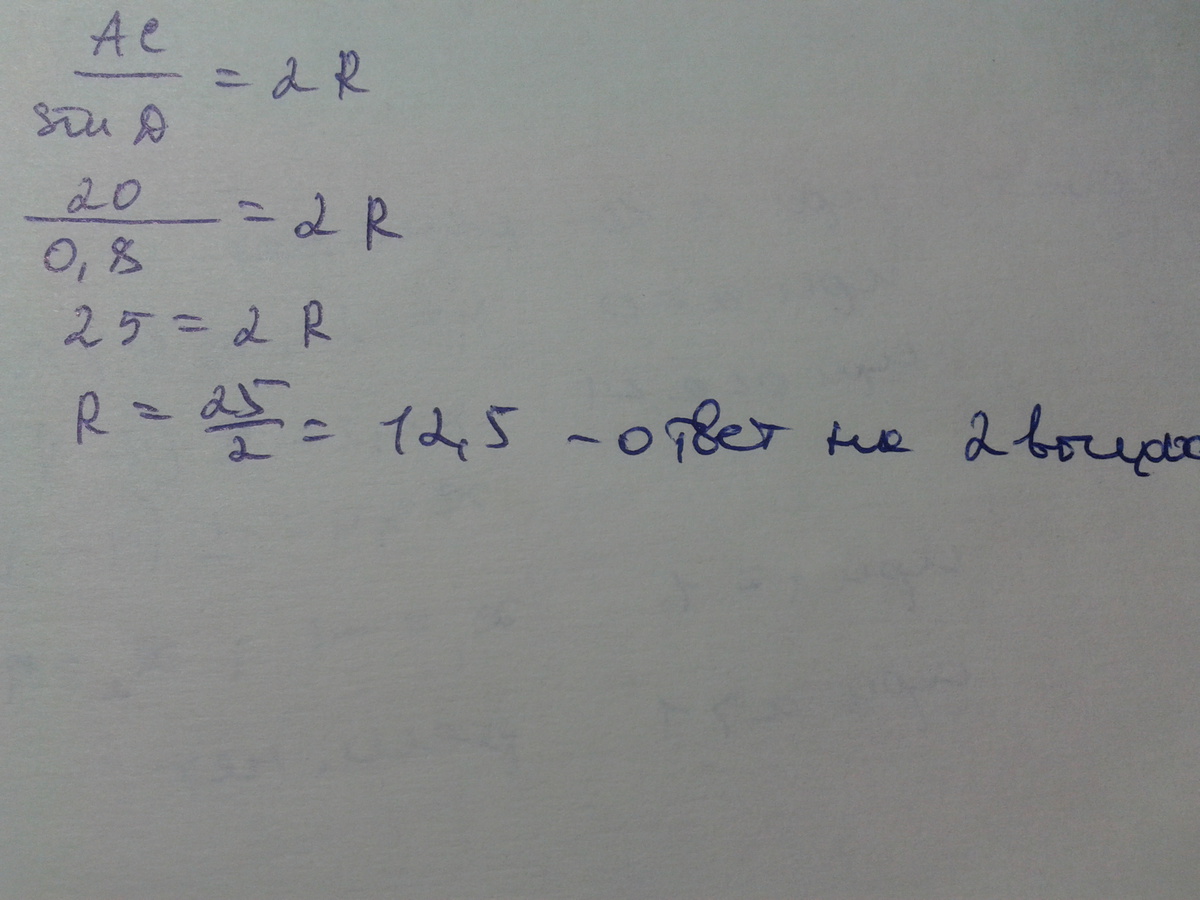 AC
sin D = 2R
20
0,8 = 2R
25 = 2R
R = 25/2 = 12,5 - ответ на 2